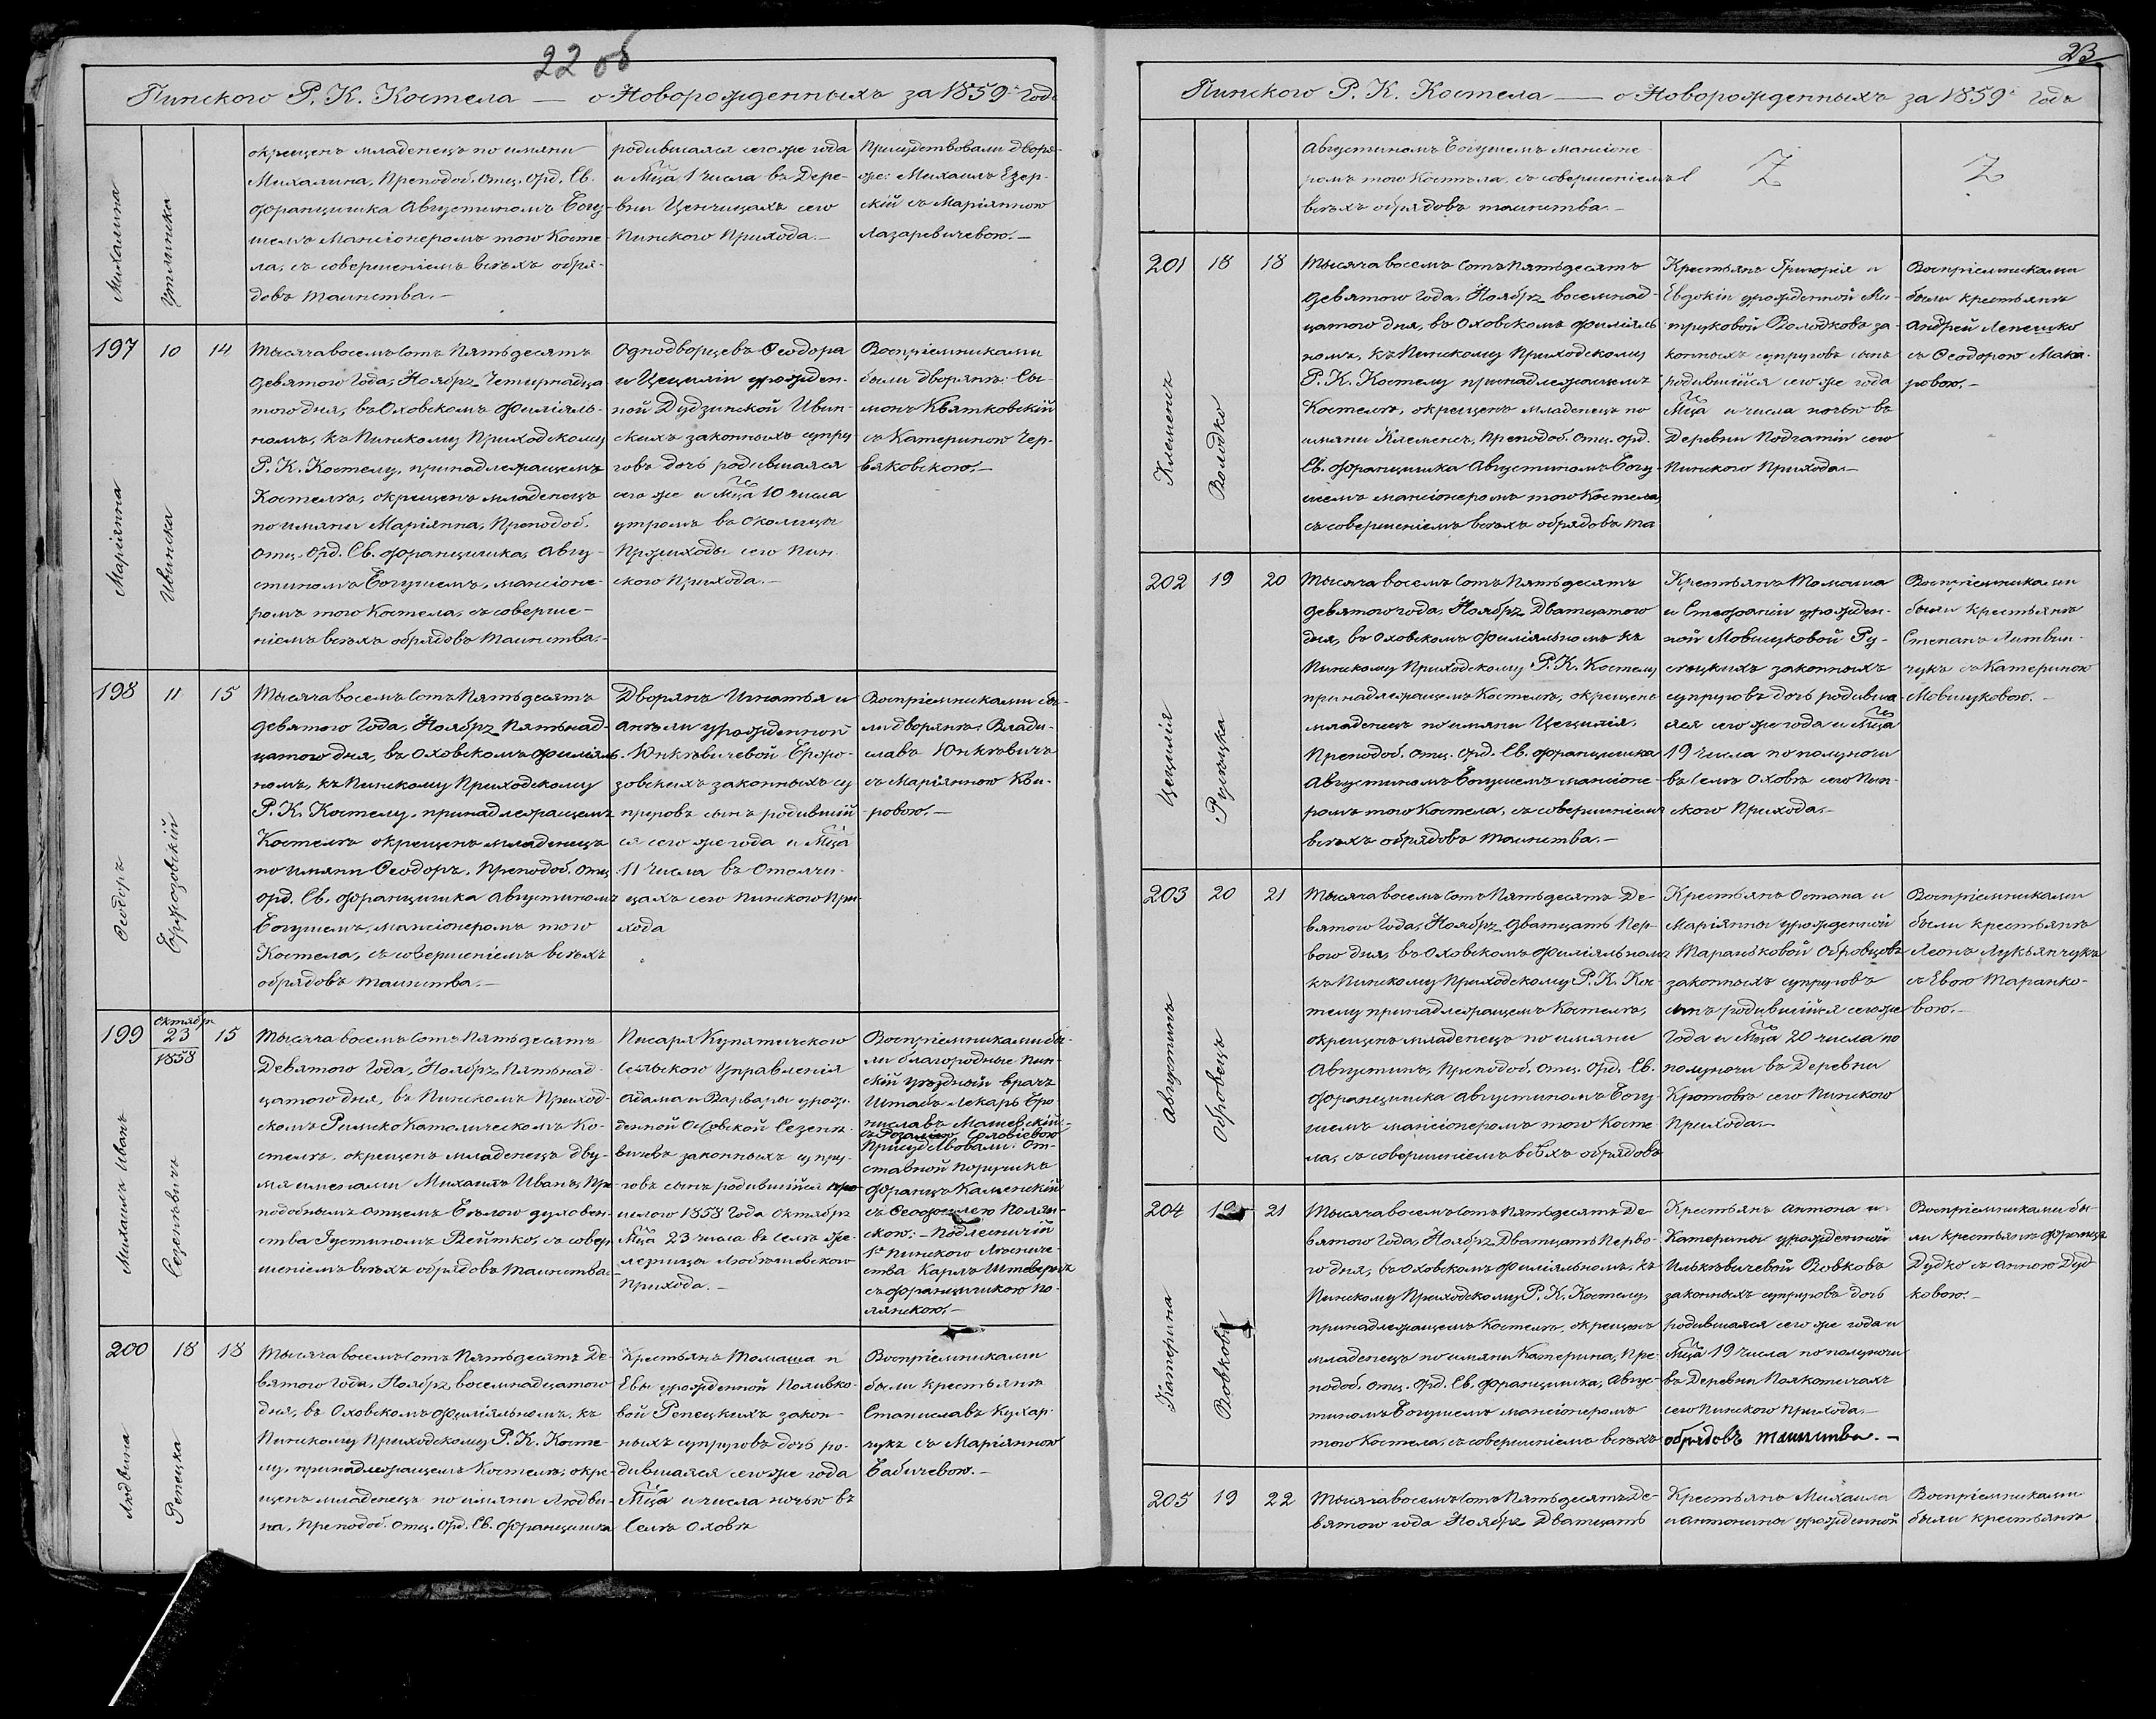 22 об
Пинского Р. К. Костела — о Новорожденныхъ за 1859й Годъ
Михалина
окрещенъ младенецъ по имяни
Михалина, Преподоб. отц. Орд. Св.
Францишка Августиномъ Богу-
шемъ Мансіонеромъ того Косте-
ла, съ совершеніемъ всѣхъ обря-
довъ таинства.—
родившаяся сего же года
и Мца 1 числа въ Дере-
вни Ценчицахъ сего
Пинского Прихода.—
Присудствовали дворя-
не: Михаилъ Езер-
скій съ Маріянною
Лазаревичевою.—
197
10
14
Маріянна
Ивинска
Тысяча восемъ сотъ Пятьдесятъ
девятого Года, Ноября Четырнадца-
того дня, въ Оховскомъ Филіяль-
номъ, къ Пинскому Приходскому
Р. К. Костелу, принадлежащемъ
Костелѣ, окрещенъ младенецъ
по имяни Маріянна, Преподоб.
отц. Орд. Св. Францишка, Авгу-
стиномъ Богушемъ, мансіоне-
ромъ того Костела, съ соверше-
ніемъ всѣхъ обрядовъ Таинства.—
Однодворцевъ Ѳеодора
и Цециліи урожден-
ной Дудзинской Ивин-
скихъ законныхъ супру
говъ дочь родившаяся
сего же и Мца 10 числа
утромъ въ околицы
сего Пин
ского Прихода.—
Воспріемниками
были дворянъ: Сы-
монъ Квятковскій
съ Катериною Чер-
вяковскою.—
198
11
15
Ѳеодоръ
Ержозовскій
Тысяча восемъ сотъ Пятьдесятъ
девятого Года, Ноября Пятьнад-
цатого дня, въ Оховскомъ Филіяль-
номъ, къ Пинскому Приходскому
Р. К. Костелу, принадлежащемъ
Костелѣ окрещенъ младенецъ
по имяни Ѳеодоръ, Преподоб. отц.
орд. Св. Францишка Августиномъ
Богушемъ, мансіонеромъ того
Костела, съ совершеніемъ всѣхъ
обрядовъ таинства.—
Дворянъ Игнатья и
Анѣли урожденной
Юнкѣвичевой Ержо-
зовскихъ законныхъ су
пруговъ сынъ родившій
ся сего же года и Мца
11 числа въ Отолчи-
цахъ сего Пинского При-
хода
Воспріемниками бы-
ли дворянъ: Влади-
славъ Юнкѣвичъ
съ Маріянною Кви-
ровою.—
199
Октября
23
1858
15
Михаилъ Иванъ
Сезенѣвичъ
Тысяча восемъ сотъ Пятьдесятъ
Девятого Года, Ноября Пятьнад-
цатого дня, въ Пинскомъ Приход-
скомъ Римско Католическомъ Ко-
стелѣ, окрещенъ младенецъ дву-
мя именами Михаилъ Иванъ, Пре-
подобнымъ отцемъ Бѣлого духовен-
ства Іустиномъ Рейтко, съ совер
шеніемъ всѣхъ обрядовъ таинства
Писаря Купятичского
Сельского Управленія
Адама и Варвары урож-
денной Сезенѣ-
вичевъ законныхъ супру-
говъ сынъ родившійся про-
шлого 1858 года Октября
Мца 23 числа въ Селѣ
Любешевского
Прихода.—
Воспріемниками бы-
ли благородные Пин-
скій уѣздный врачъ
Штабъ Лекарь Бро
ниславъ Машевскій
съ Розаліею Соловіевою
Присудствовали: От-
ставной поручикъ
Францъ Каменскій
съ Ѳеофилею Полян-
скою.— Подлесничій
1го Пинского Лѣсниче-
ства Карлъ
съ Францишкою По-
лянскою.—
200
18
18
Людвина
Репецка
Тысяча восемъ сотъ Пятьдесятъ Де-
вятого Года, Ноября восемнадцатого
дня, въ Оховскомъ Филіяльномъ, къ
Пинскому Приходскому Р. К. Косте-
лу, принадлежащемъ Костелѣ, окре-
щенъ младенецъ по имяни Людви-
на, Преподоб. отц. Орд. Св. Францишка
Крестьянъ Томаша и
Евы урожденной Поливко-
вой Репецкихъ закон-
ныхъ супруговъ дочь ро-
дившаяся сего же года
Мца и числа ночью въ
Селѣ Оховѣ
Воспріемниками
были крестьянъ
Станиславъ Кухар-
чукъ съ Маріянною
Бабичевою.—
23
Пинского Р. К. Костела — о Новорожденныхъ за 1859й Годъ
Августиномъ Богушемъ мансіоне-
ромъ того Костѣла, съ совершеніемъ
всѣхъ обрядовъ таинства.—
Z
Z
201
18
18
Клеменсъ
Володко
Тысяча восемъ сотъ Пятьдесятъ
девятого Года, Ноября восемнад-
цатого дня, въ Оховскомъ Филіяль
номъ, къ Пинскому Приходскому
Р. К. Костелу принадлежащемъ
Костелѣ, окрещенъ младенецъ по
имяни Клеменсъ, Преподоб. отц. орд.
Св. Францишка Августиномъ Богу-
шемъ мансіонеромъ того Костела,
съ совершеніемъ всѣхъ обрядовъ та
Крестьянъ Григорія и
Евдокіи урожденной Ми-
труковой Володковъ за-
конныхъ супруговъ сынъ
родившійся сего же года
Мца и числа ночью въ
Деревни Подгатіи сего
Пинского Прихода.—
Воспріемниками
были крестьянъ
Андрей Лепешко
съ Ѳеодорою Мака-
ровою.—
202
19
20
Цецилія
Русѣцка
Тысяча восемъ сотъ Пятьдесятъ
девятого года, Ноября Дватцатого
дня, въ Оховскомъ Филіяльномъ къ
Пинскому Приходскому Р. К. Костелу
принадлежащемъ Костелѣ, окрещенъ
младенецъ по имяни Цецилія,
Преподоб. отц. Орд. Св. Францишка
Августиномъ Богушемъ мансіоне-
ромъ того Костела, съ совершеніемъ
всѣхъ обрядовъ таинства.—
Крестьянъ Томаша
и Стефаніи урожден-
ной Мовшуковой Ру-
сѣцкихъ законныхъ
супруговъ дочь родивша-
яся сего же года и Мца
19 числа по полуночи
въ Селѣ Оховѣ сего Пин-
ского Прихода.—
Воспріемниками
были крестьянъ
Степанъ Литвин-
чукъ съ Катериною
Мовшуковою.—
203
20
21
Августинъ
Обровецъ
Тысяча восемъ сотъ Пятьдесятъ Де-
вятого Года, Ноября дватцать Пер-
вого дня, въ Оховскомъ Филіяльномъ
къ Пинскому Приходскому Р. К. Кос-
телу принадлежащемъ Костелѣ,
окрещенъ младенецъ по имяни
Августинъ, Преподоб. отц. Орд. Св.
Францишка Августиномъ Богу-
шемъ мансіонеромъ того Косте-
ла, съ совершеніемъ всѣхъ обрядовъ
Крестьянъ Остапа и
Маріянны урожденной
Таранковой Обровцовъ
законныхъ супруговъ
сынъ родившійся сего же
Года и Мца 20 числа по
полуночи въ Деревни
Кротовѣ сего Пинского
Прихода.—
Воспріемниками
были крестьянъ
Леонъ Лукьянчукъ
съ Евою Таранко-
вою.—
204
19
21
Катерина
Вовковна
Тысяча восемъ сотъ Пятьдесятъ Де-
вятого Года, Ноября Дватцать Перво-
го дня, въ Оховскомъ Филіяльномъ, къ
Пинскому Приходскому Р. К. Костелу,
принадлежащемъ Костелѣ, окрещенъ
младенецъ по имяни Катерина, Пре-
подоб. отц. Орд. Св. Францишка, Авгус-
тиномъ Богушемъ мансіонеромъ
того Костела, съ совершеніемъ всѣхъ
обрядовъ таинства.—
Крестьянъ Антона и
Катерины урожденной
Илькѣвичевой Вовковъ
законныхъ супруговъ дочь
родившаяся сего же года и
Мца 19 числа по полуночи
въ Деревни Полкотичахъ
сего Пинского Прихода.—
Воспріемниками бы-
ли крестьянъ Францъ
Дудко съ Анною Дуд
ковою.—
205
19
22
Тысяча восемъ сотъ Пятьдесятъ Де-
вятого года Ноября Дватцать
Крестьянъ Михаила
и Антонины урожденной
Воспріемниками
были крестьянъ